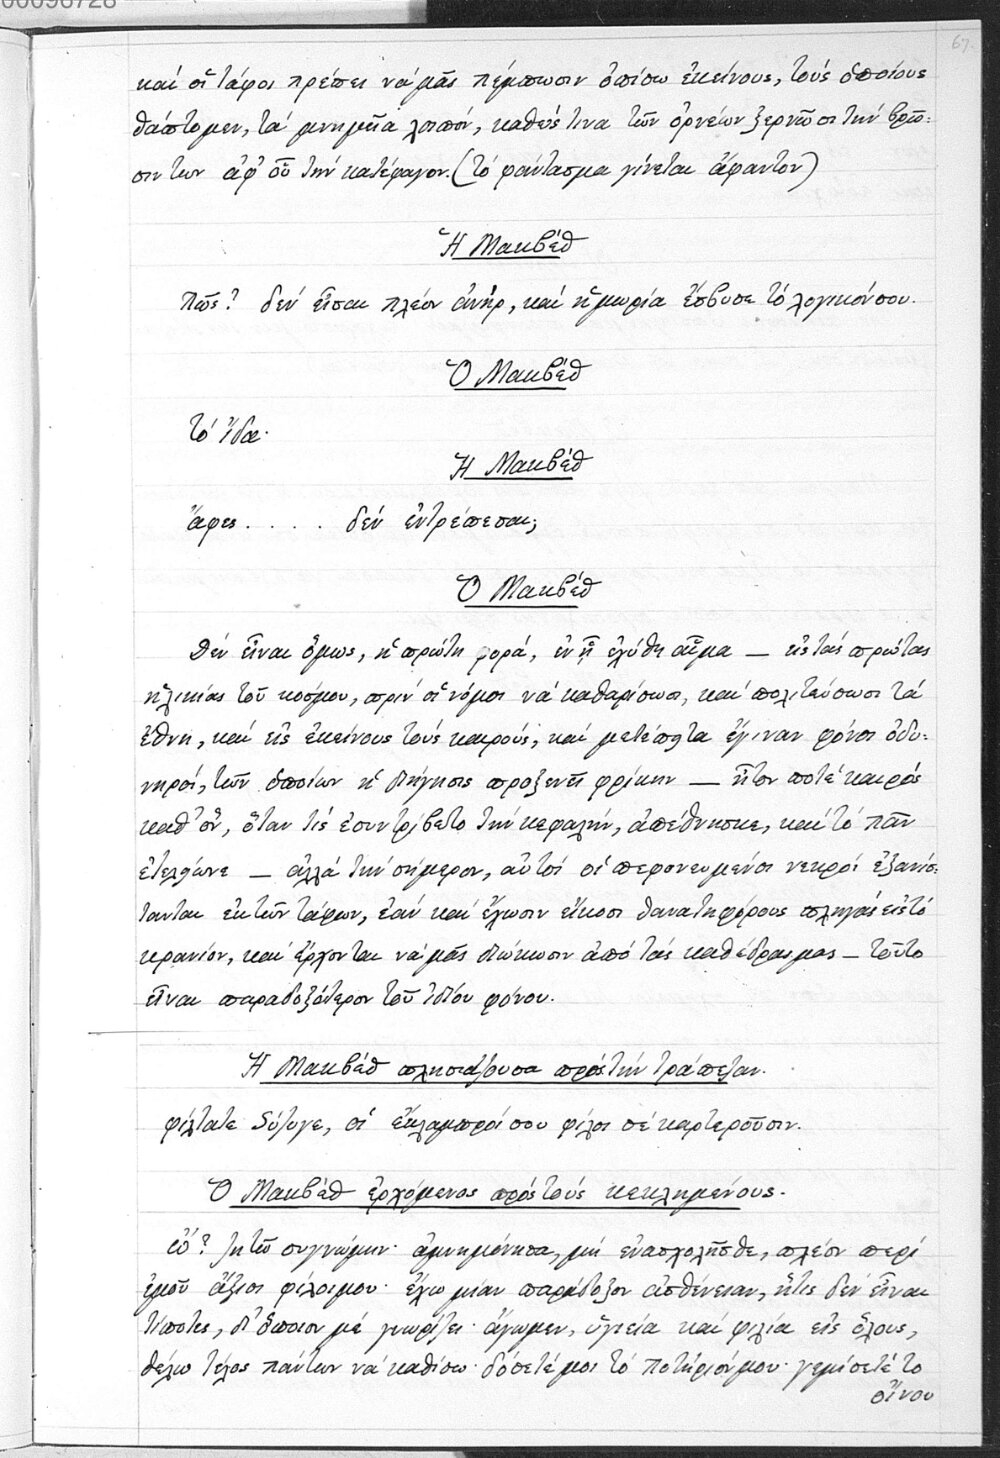 00096728
67.
καί οἱ τάφοι πρέπει νά μᾶς πέμπωσιν ὀπίσω ἐκείνους, τούς ὁποίους
θάπτομεν, τά μνημεῖα λοιπόν, καθώς τινα τῶν ὀρνείων ξερνῶσι τήν βρῶ-
σιν των ἀφ' οὗ τήν κατέφαγον. (τό φάντασμα γίνεται ἄφαντον)
Ἡ Μακβέθ
Πῶς? δέν εἶσαι πλέον ἀνήρ, καί ἡ μωρία ἔσβυσε τό λογικόν σου.
Ὁ Μακβέθ
τό ἴδα.
Ἡ Μακβέθ
ἄφες . . . . δέν ἐντρέπεσαι;
Ὁ Μακβέθ
Δέν εἶναι ὅμως, ἡ πρώτη φορά, ἐν ᾗ ἐχύθη αἷμα — εἰς τάς πρώτας
ἡλικίας τοῦ κόσμου, πρίν οἱ νόμοι νά καθαρίσωσι, καί πολιτεύσωσι τά
ἔθνη, καί εἰς ἐκείνους τούς καιρούς, καί μετέπειτα ἔγιναν φόνοι ὀδυ-
νηροί, τῶν ὁποίων ἡ διήγησις προξενεῖ φρίκην — ἦτον ποτέ καιρός
καθ' ὅν, ὅταν τίς ἐσυντρίβετο τήν κεφαλήν, ἀπέθνησκε, καί τό πᾶν
ἐτελείωνε — ἀλλά τήν σήμερον, αὐτοί οἱ πεφονευμένοι νεκροί ἐξανίσ-
τανται ἐκ τῶν τάφων, ἐάν καί ἔχωσιν εἴκοσι θανατηφόρους πληγάς εἰς τό
κρανίον, καί ἔρχονται νά μᾶς διώκωσιν ἀπό τάς καθέδρας μας — τοῦτο
εἶναι παραδοξότερον τοῦ ἰδίου φόνου.
Ἡ Μακβέθ πλησιάζουσα πρός τήν τράπεζαν.
φίλτατε Σύζυγε, οἱ ἔκλαμπροί σου φίλοι σέ καρτεροῦσιν.
Ὁ Μακβέθ ἐρχόμενος πρός τούς κεκλημένους.
ὤ? ζητῶ συγνώμην· ἀμνημόνησα, μή ἐνασχολῆσθε, πλέον περί
ἐμοῦ ἄξιοι φίλοι μου· ἔχω μίαν παράδοξον ἀσθένειαν, ἥτις δέν εἶναι
τίποτες, δι' ὅποιον μέ γνωρίζει· ἄγωμεν, ὑγιεία καί φιλία εἰς ὅλους,
θέλω τέλος πάντων νά καθίσω· δόσετέ μοι τό ποτήριόν μου· γεμίσετέ το
οἴνου